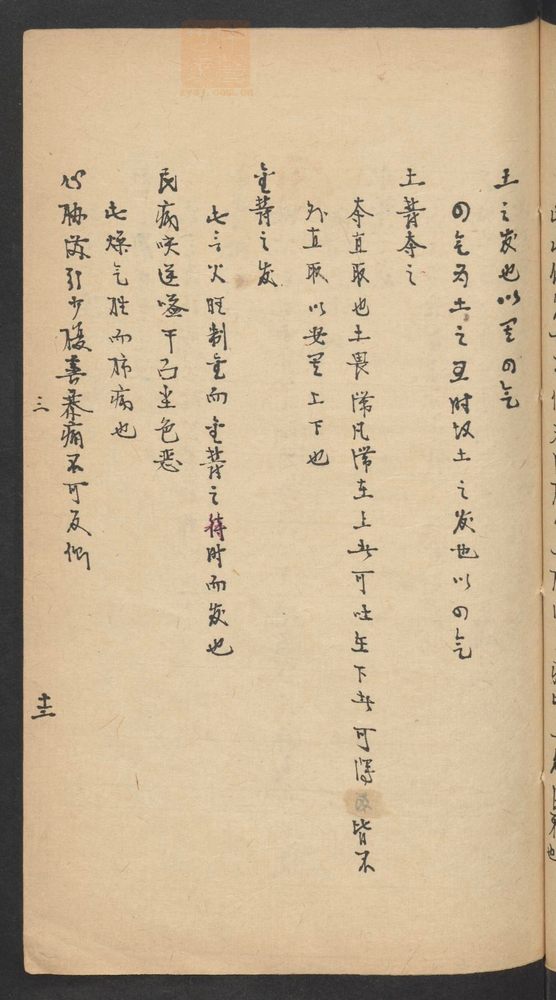 土之发也以其四气
四气为土之王时故土之发也以四气
土鬱夺之
夺直取也土畏滞凡滞在上者可吐在下者可泻皆不
外直取以安其上下也
金鬱之发
此言火旺制金而金鬱之待时而发也
民病咳逆嗌干面尘色恶
此燥气胜而肺病也
心胁满引少腹善暴痛不可反侧
三
十三